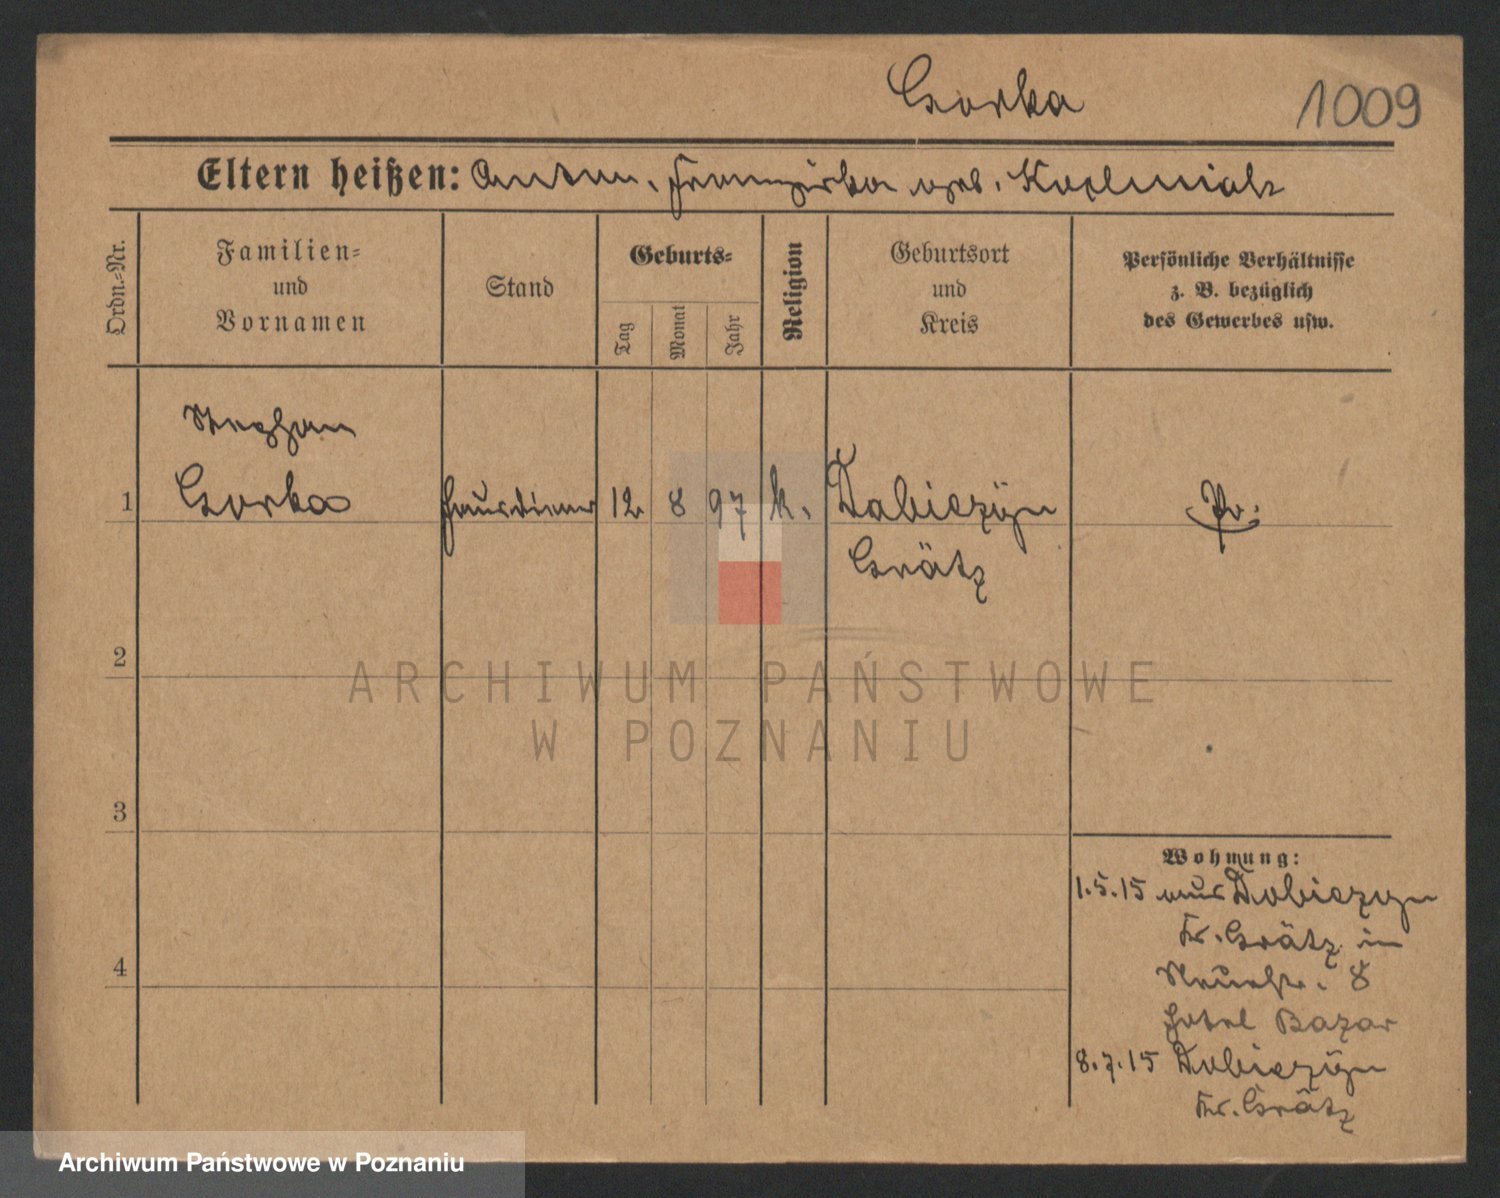 Gorka
1009
Eltern heißen: Anton, Franziska geb. Kozlowiak
Ordn.-Nr.
Familien-
und
Vornamen
Stand
Geburts-
Tag
Monat
Jahr
Religion
Geburtsort
und
Kreis
Persönliche Verhältnisse
z. B. bezüglich
des Gewerbes usw.
Stephan
1 Gorka Hausdiener 12 8 97 k. Dabiezyn Pr.
Grätz
2
3
4
Wohnung:
1.5.15 aus Dobiezyn
Kr. Grätz in
Neuestr. 8
Hotel Bazar
8.7.15 Dobiezyn
Kr. Grätz
ARCHIWUM PAŃSTWOWE
W POZNANIU
Archiwum Państwowe w Poznaniu